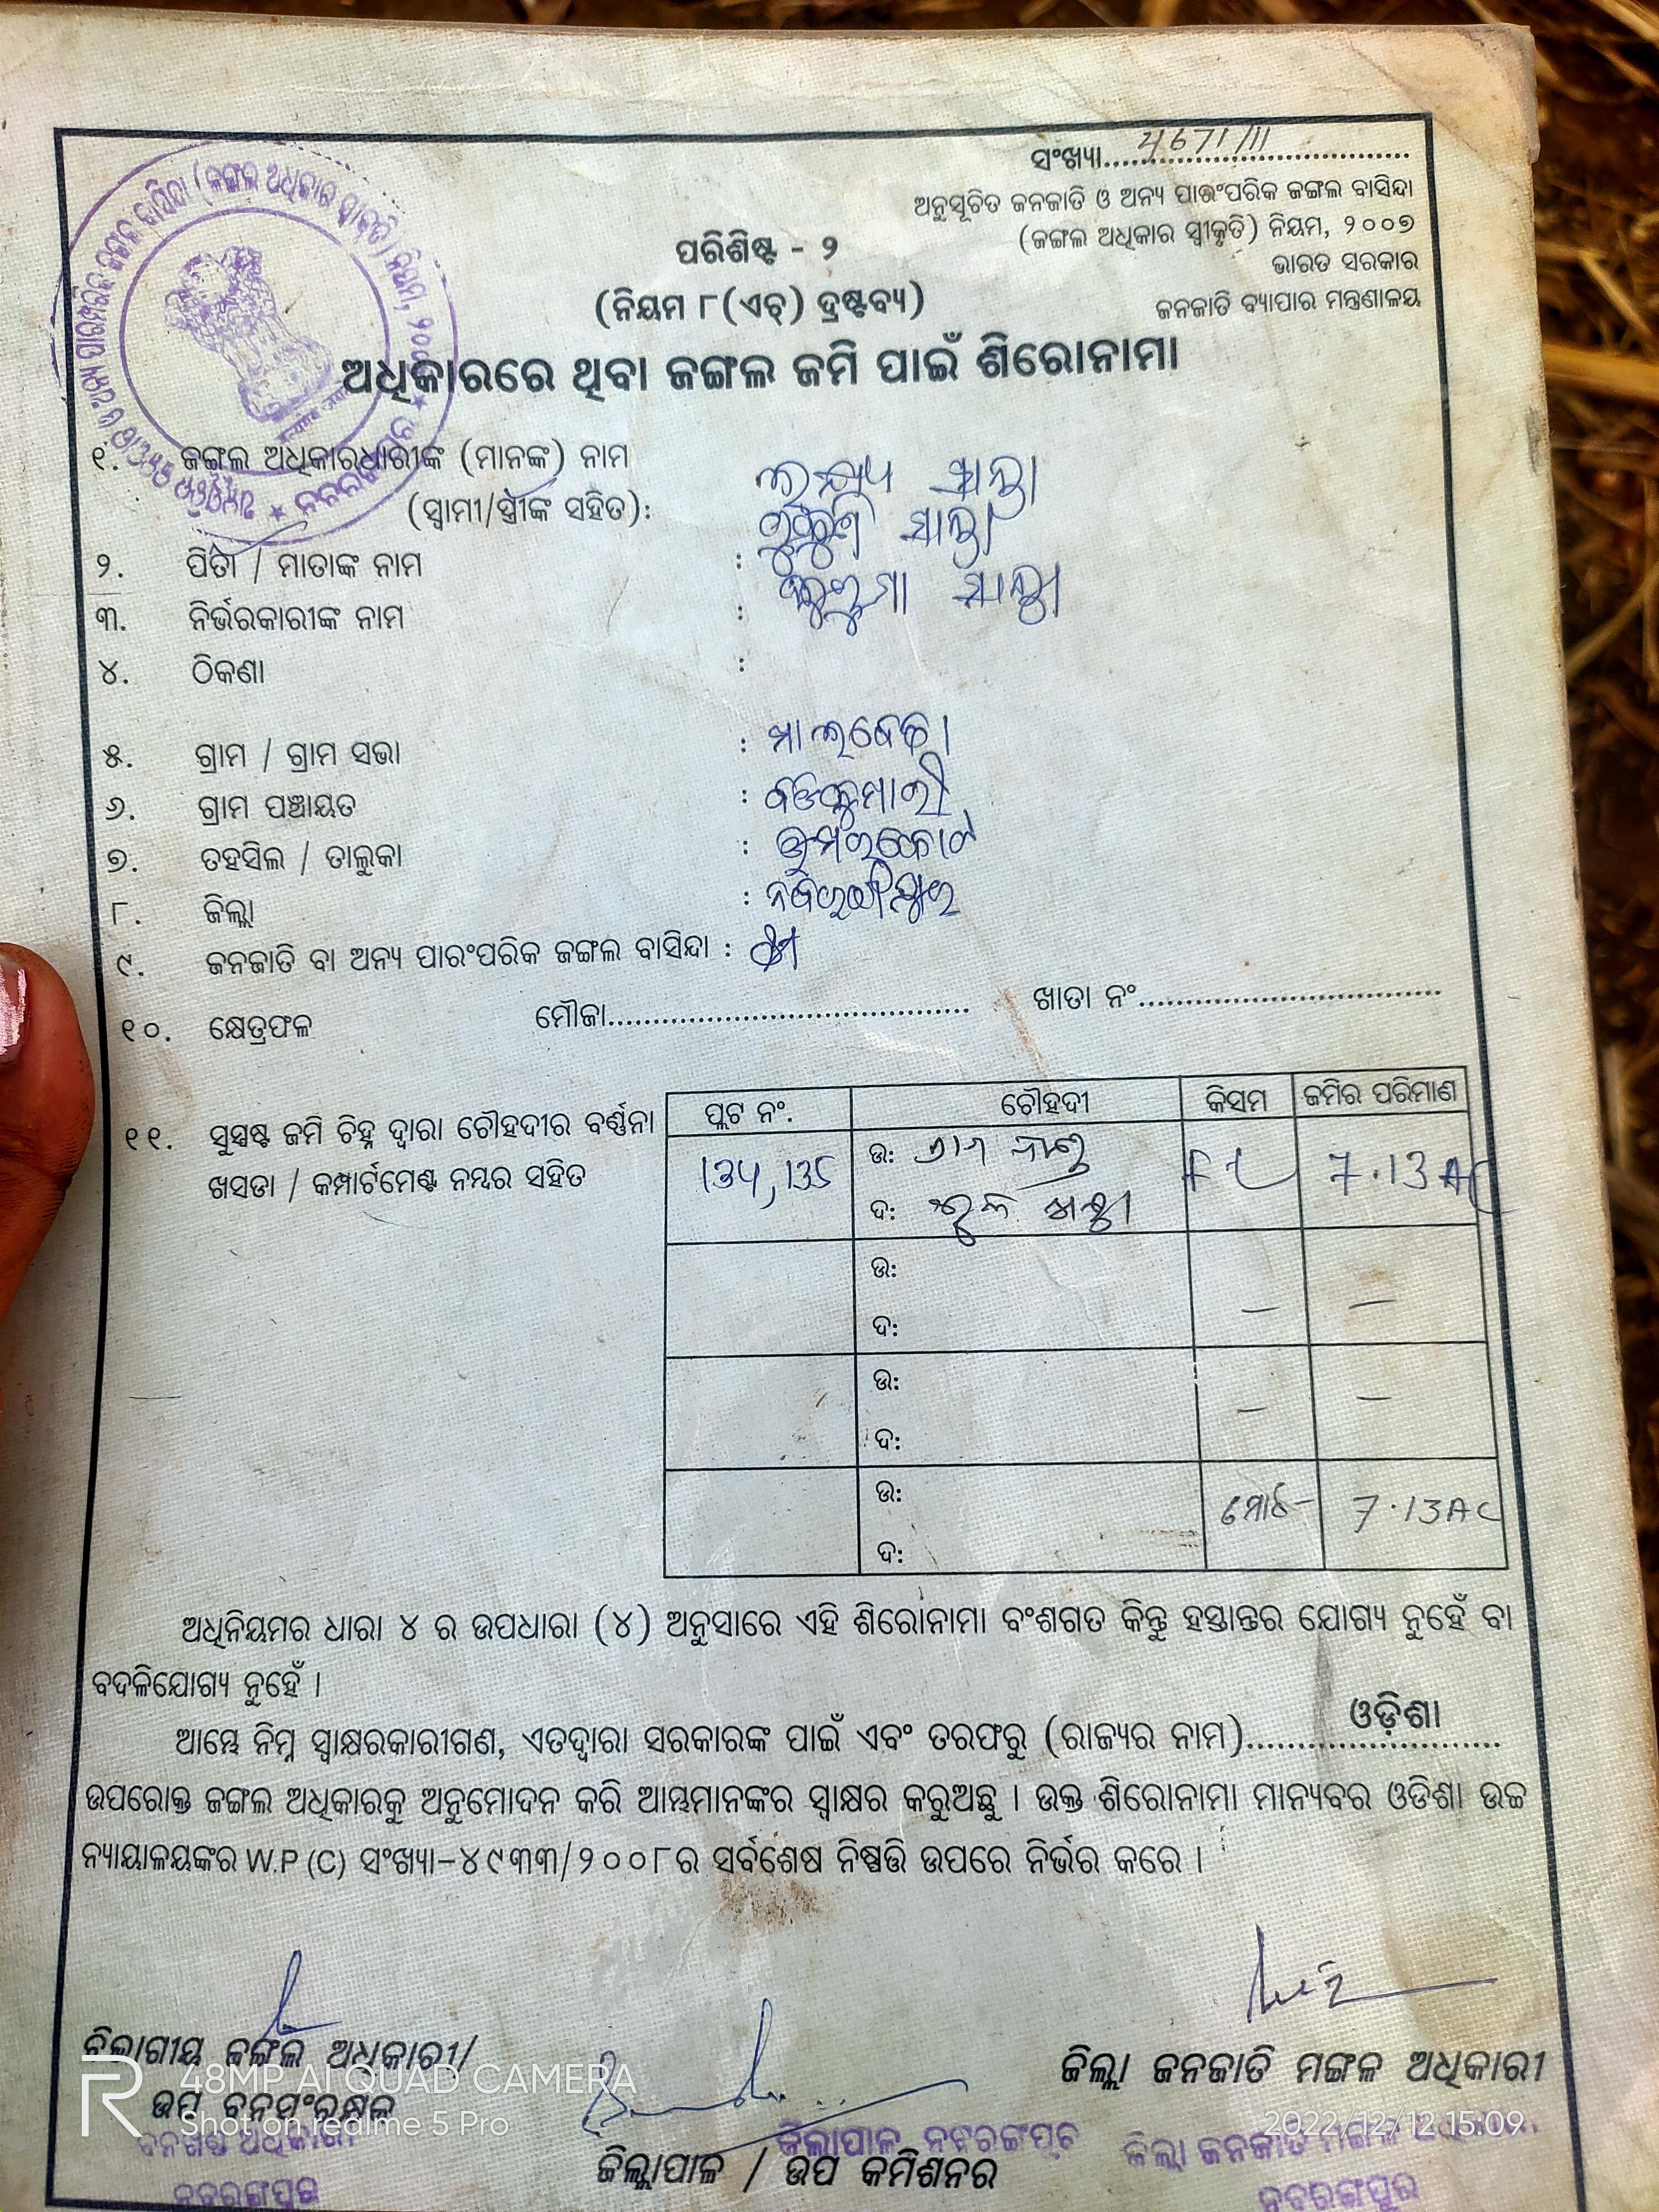 ସଂଖ୍ୟା.................................. 4671/11
ଅନୁସୂଚିତ ଜନଜାତି ଓ ଅନ୍ୟ ପାରଂପରିକ ଜଙ୍ଗଲ ବାସିନ୍ଦା
(ଜଙ୍ଗଲ ଅଧିକାର ସ୍ୱୀକୃତି) ନିୟମ, ୨୦୦୭
ଭାରତ ସରକାର
ଜନଜାତି ବ୍ୟାପାର ମନ୍ତ୍ରଣାଳୟ
ପରିଶିଷ୍ଟ - ୨
(ନିୟମ ୮(ଏଚ୍) ଦ୍ରଷ୍ଟବ୍ୟ)
ଅଧିକାରରେ ଥିବା ଜଙ୍ଗଲ ଜମି ପାଇଁ ଶିରୋନାମା
୧. ଜଙ୍ଗଲ ଅଧିକାରଧାରୀଙ୍କ (ମାନଙ୍କ) ନାମ
(ସ୍ୱାମୀ/ସ୍ତ୍ରୀଙ୍କ ସହିତ):
୨. ପିତା / ମାତାଙ୍କ ନାମ :
୩. ନିର୍ଭରକାରୀଙ୍କ ନାମ :
୪. ଠିକଣା :
୫. ଗ୍ରାମ / ଗ୍ରାମ ସଭା : ମାଲବେଡ଼ା
୬. ଗ୍ରାମ ପଞ୍ଚାୟତ :
୭. ତହସିଲ / ତାଲୁକା : ଉମରକୋଟ
୮. ଜିଲ୍ଲା : ନବରଙ୍ଗପୁର
୯. ଜନଜାତି ବା ଅନ୍ୟ ପାରଂପରିକ ଜଙ୍ଗଲ ବାସିନ୍ଦା :
୧୦. କ୍ଷେତ୍ରଫଳ ମୌଜା....................................... ଖାତା ନଂ.................................
୧୧. ସୁସ୍ପଷ୍ଟ ଜମି ଚିହ୍ନ ଦ୍ୱାରା ଚୌହଦୀର ବର୍ଣ୍ଣନା
ଖସଡା / କମ୍ପାର୍ଟମେଣ୍ଟ ନମ୍ବର ସହିତ
ପ୍ଲଟ ନଂ. ଚୌହଦୀ କିସମ ଜମିର ପରିମାଣ
ଉ:
134, 135 7.13 AC
ଦ:
ଉ:
ଦ:
ଉ:
ଦ:
ଉ: ମୋଟ- 7.13AC
ଦ:
ଅଧିନିୟମର ଧାରା ୪ ର ଉପଧାରା (୪) ଅନୁସାରେ ଏହି ଶିରୋନାମା ବଂଶଗତ କିନ୍ତୁ ହସ୍ତାନ୍ତର ଯୋଗ୍ୟ ନୁହେଁ ବା
ବଦଳିଯୋଗ୍ୟ ନୁହେଁ ।
ଆମ୍ଭେ ନିମ୍ନ ସ୍ୱାକ୍ଷରକାରୀଗଣ, ଏତଦ୍ୱାରା ସରକାରଙ୍କ ପାଇଁ ଏବଂ ତରଫରୁ (ରାଜ୍ୟର ନାମ)......ଓଡ଼ିଶା......
ଉପରୋକ୍ତ ଜଙ୍ଗଲ ଅଧିକାରକୁ ଅନୁମୋଦନ କରି ଆମ୍ଭମାନଙ୍କର ସ୍ୱାକ୍ଷର କରୁଅଛୁ । ଉକ୍ତ ଶିରୋନାମା ମାନ୍ୟବର ଓଡିଶା ଉଚ୍ଚ
ନ୍ୟାୟାଳୟଙ୍କର W.P (C) ସଂଖ୍ୟା-୪୯୩୩/୨୦୦୮ର ସର୍ବଶେଷ ନିଷ୍ପତ୍ତି ଉପରେ ନିର୍ଭର କରେ ।
ବିଭାଗୀୟ ଜଙ୍ଗଲ ଅଧିକାରୀ/
ଉପ ବନସଂରକ୍ଷକ
ବନଖଣ୍ଡ ଅଧିକାରୀ
ନବରଙ୍ଗପୁର
ଜିଲ୍ଲାପାଳ ନବରଙ୍ଗପୁର
ଜିଲ୍ଲାପାଳ / ଉପ କମିଶନର
ଜିଲ୍ଲା ଜନଜାତି ମଙ୍ଗଳ ଅଧିକାରୀ
ଜିଲ୍ଲା ଜନଜାତି ମଙ୍ଗଳ ଅଧିକାରୀ
ନବରଙ୍ଗପୁର
48MP AI QUAD CAMERA
Shot on realme 5 Pro
2022/12/12 15:09